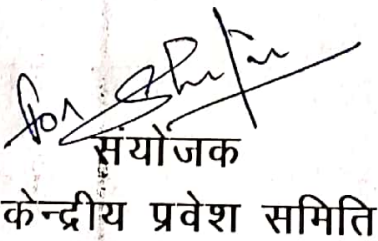 for
संयोजक
केन्द्रीय प्रवेश समिति